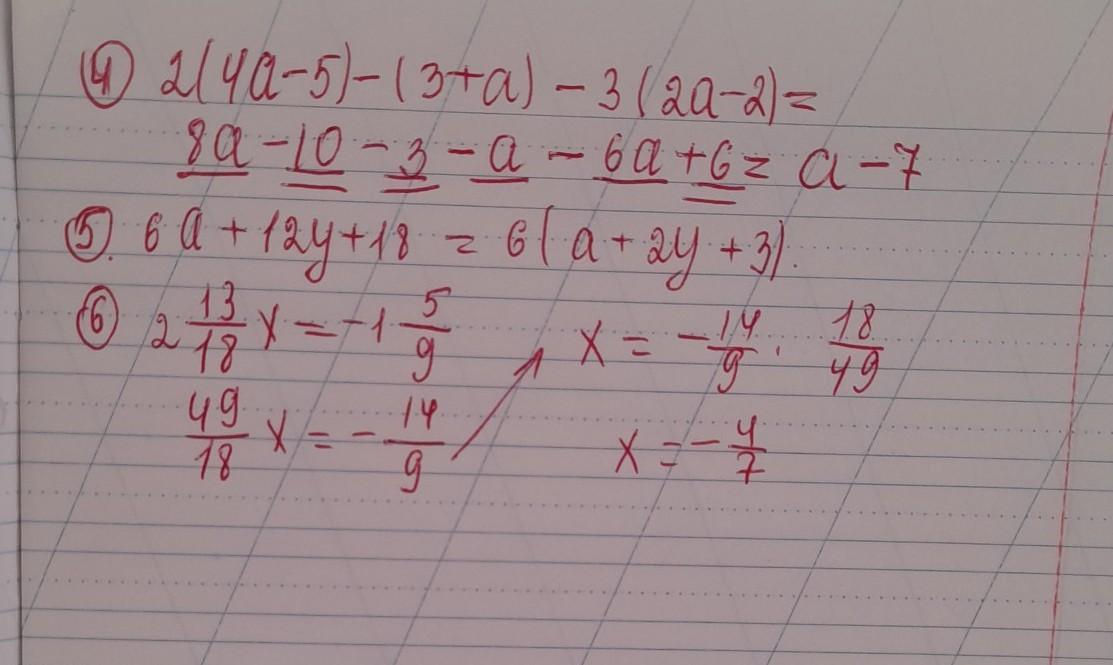 ④ 2(4a-5)-(3+a)-3(2a-2)=
8a-10-3-a-6a+6=a-7
⑤. 6a+12y+18=6(a+2y+3).
⑥ 2 13/18 x=-1 5/9 x=-14/9 · 18/49
49/18 x=-14/9 x=-4/7